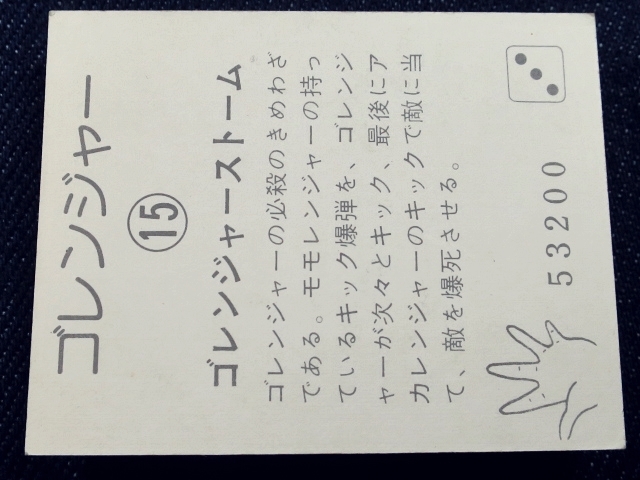 ゴレンジャー
15
ゴレンジャーストーム
ゴレンジャーの必殺のきめわざ
である。モモレンジャーの持っ
ているキック爆弾を、ゴレンジ
ャーが次々とキック、最後にア
カレンジャーのキックで敵に当
て、敵を爆死させる。
53200